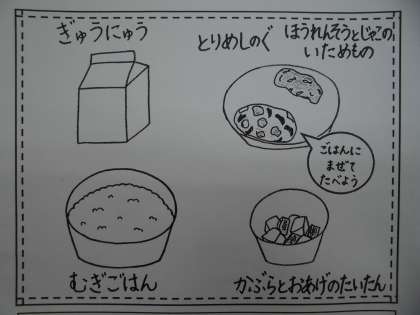 ぎゅうにゅう
とりめしのぐ
ほうれんそうとじゃこの
いためもの
ごはんに
まぜて
たべよう
むぎごはん
かぶらとおあげのたいたん